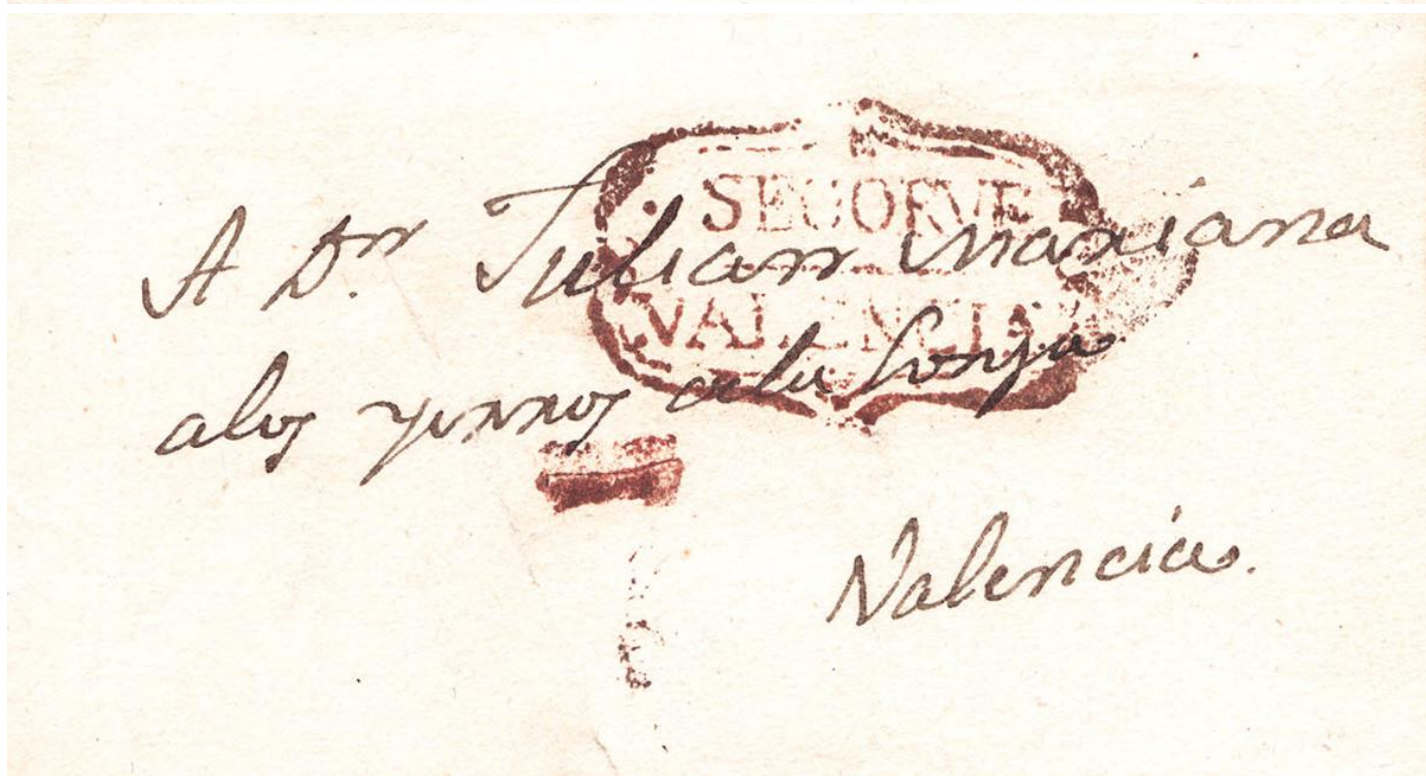 SEGORVE
VALENCIA
A Dn Julian Mariana
a los yerros de la Lonja
Valencia.